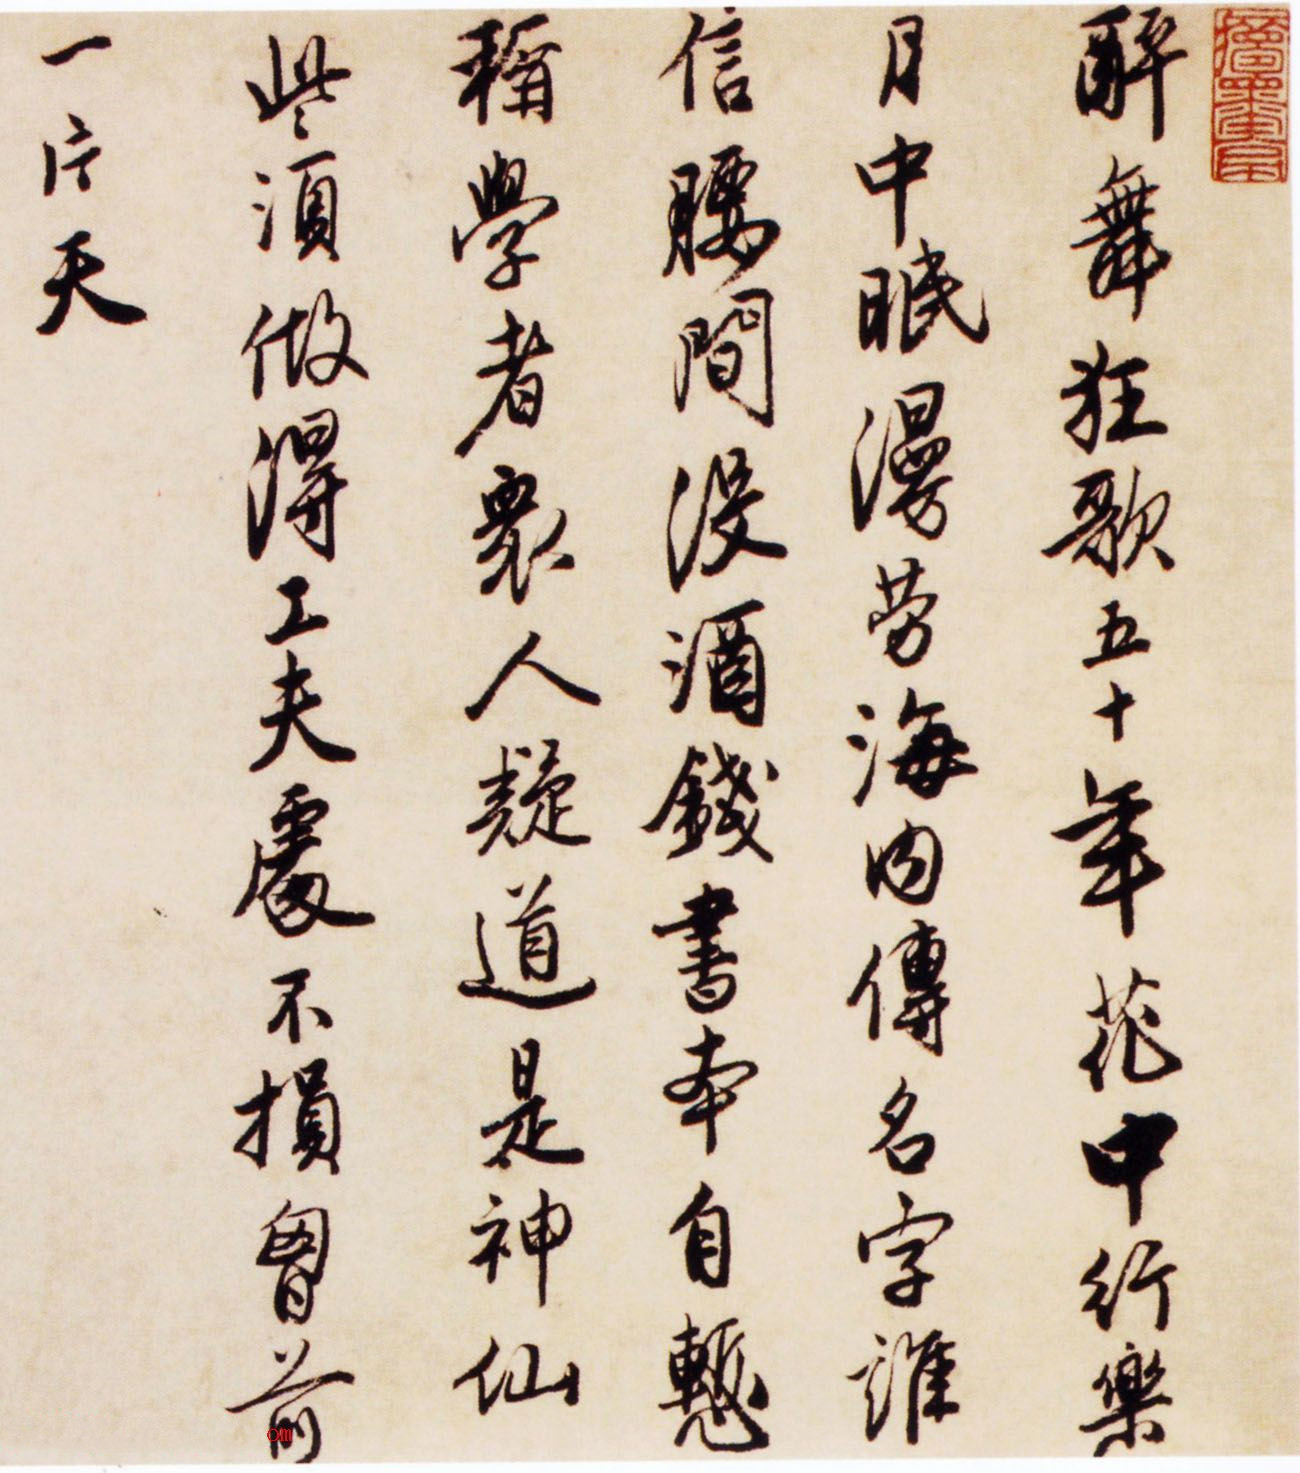 醉舞狂歌五十年花中行樂
月中眠漫勞海內傳名字誰
信腰間沒酒錢書本自慙
稱學者衆人疑道是神仙
些須做得工夫處不損胷前
一片天